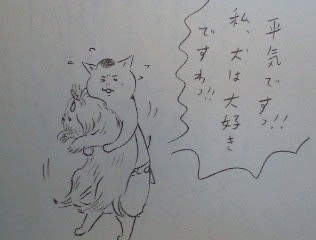 平気ですっ!!
私、犬は大好き
ですわっ!!